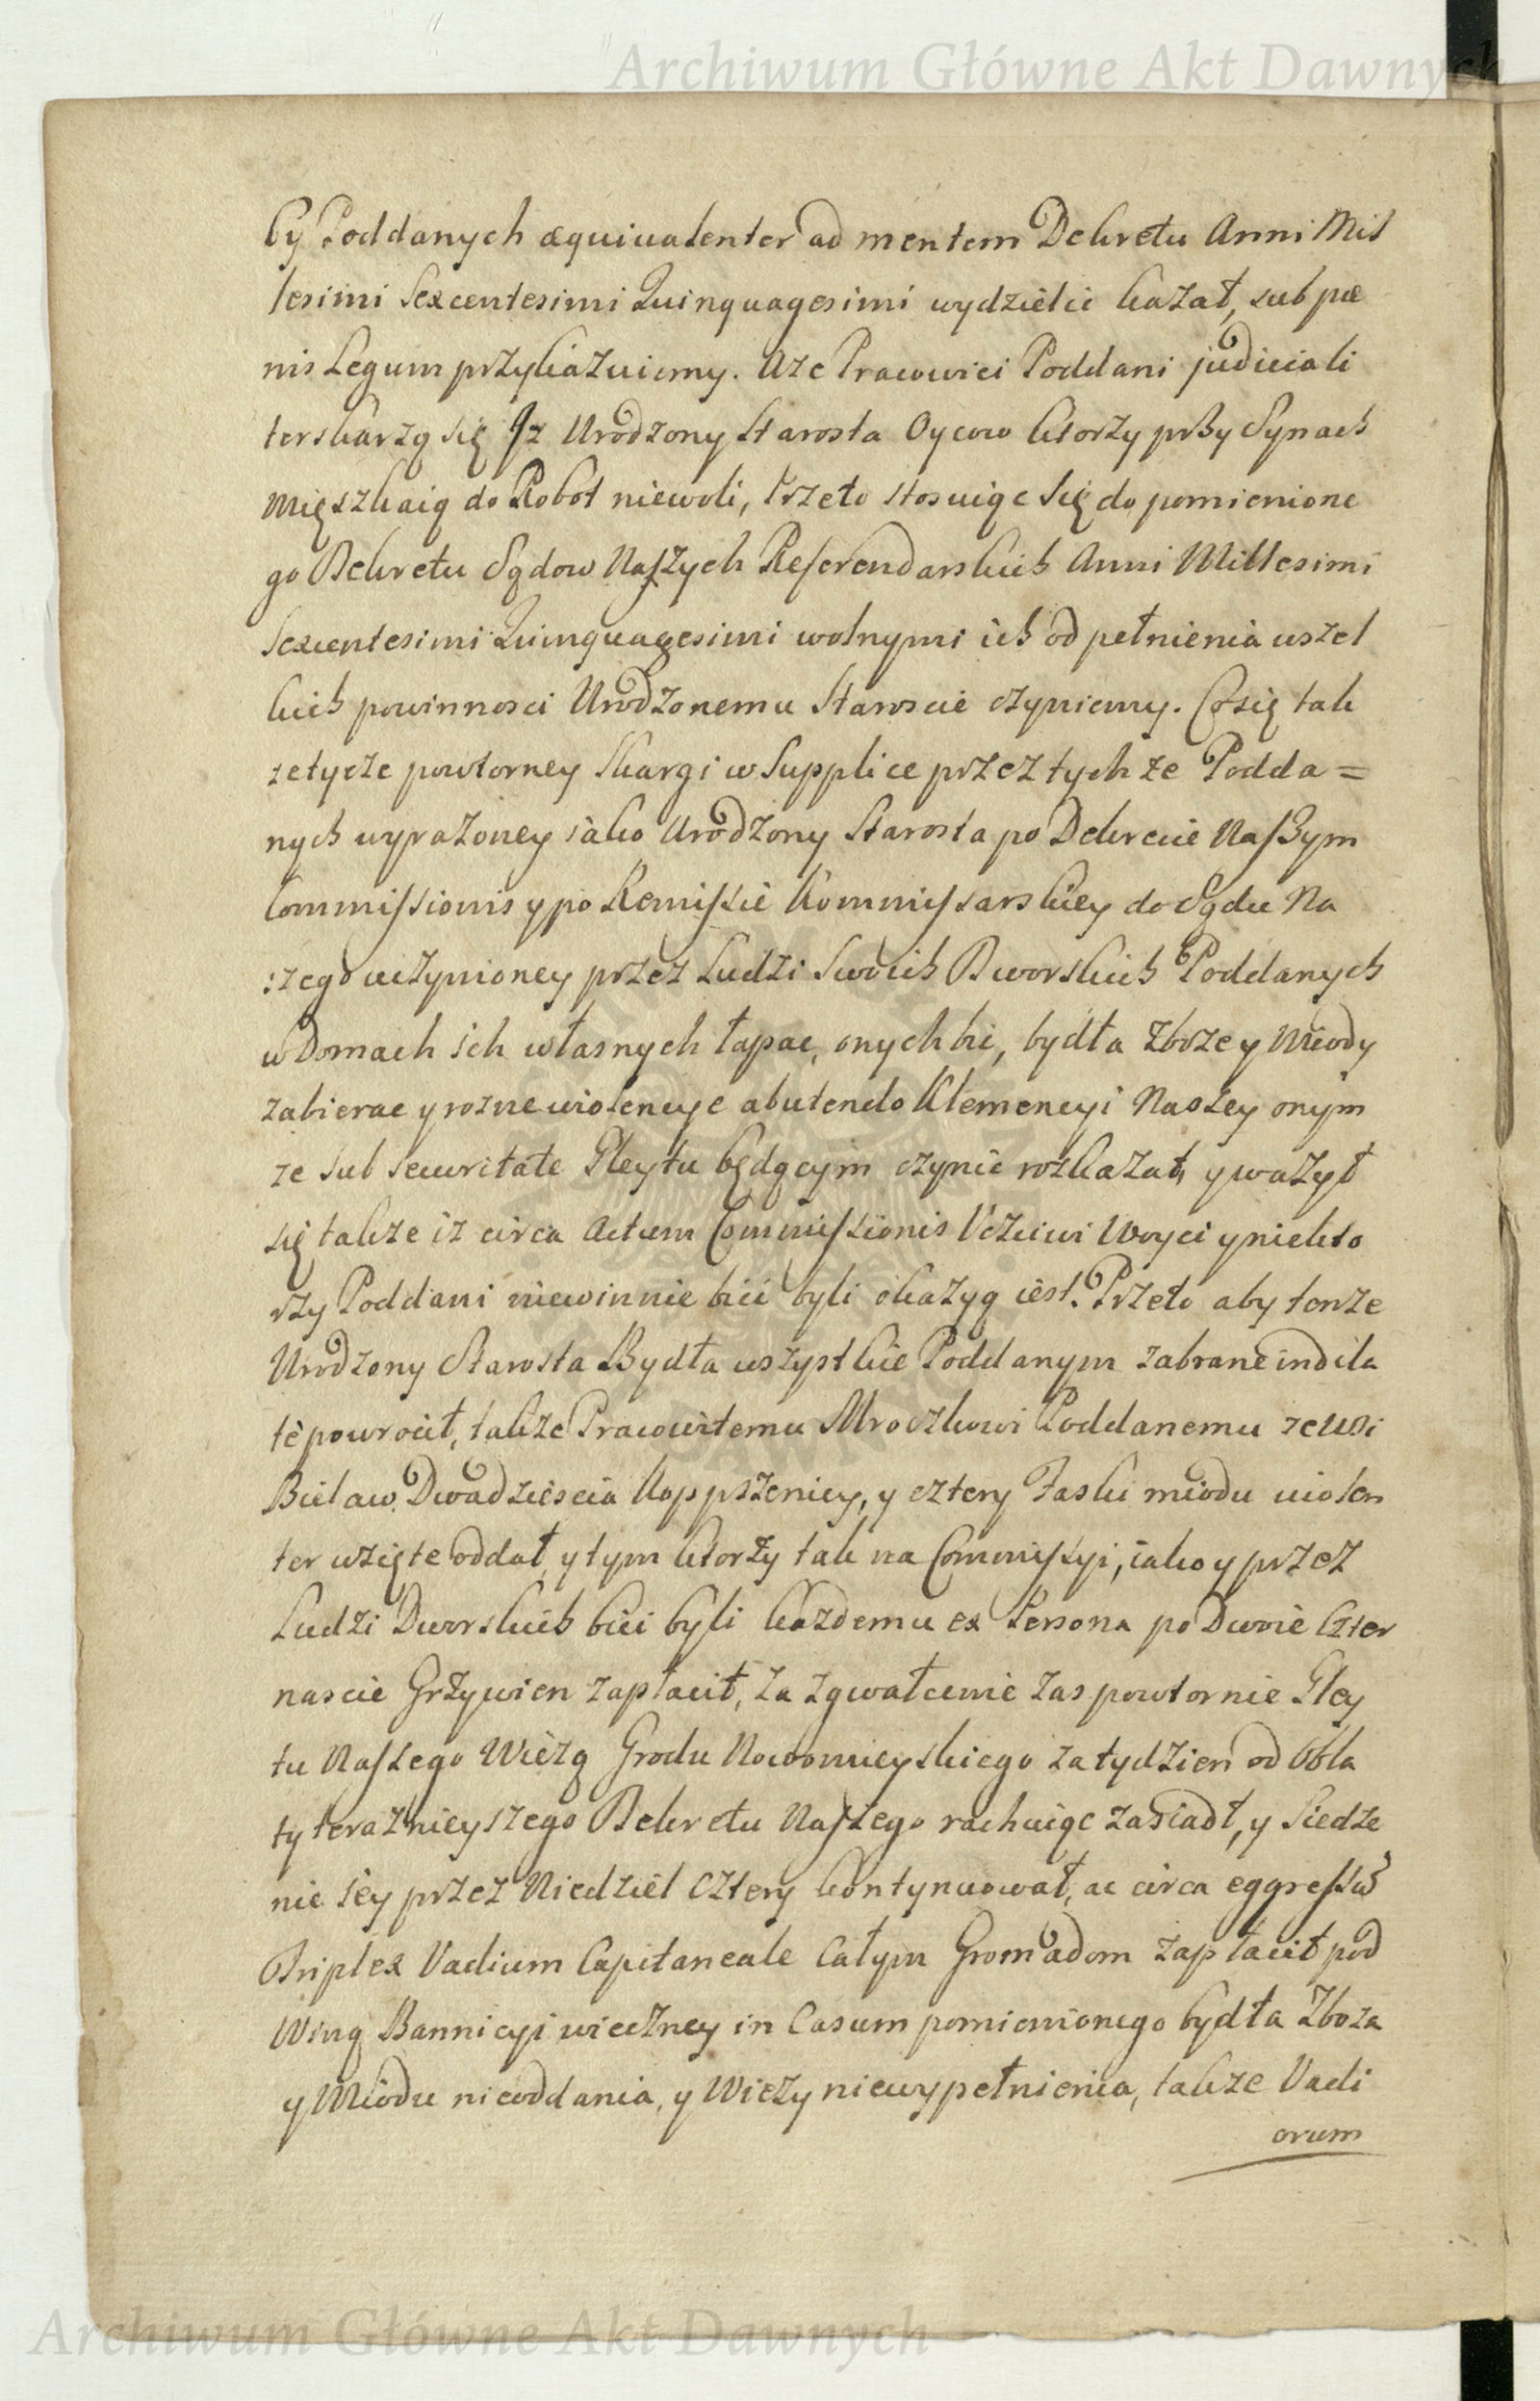 Archiwum Główne Akt Dawnych
by Poddanych æquivalenter ad mentem Dekretu Anni Mil
lesimi Sexcentesimi Quinquagesimi wydzielić kazał, sub pæ
nis Legum przykazuiemy. A ze Pracowici Poddani judiciali
ter skarzą się Jz Urodzony Starosta Oycow ktorzy przy Synach
Mięszkaią do Robot niewoli, Przeto stosuiąc się do pomienione
go Dekretu Sądow Naszych Referendarskich Anni Millesimi
Sexcentesimi Quinquagesimi wolnymi ich od pełnienia wszel
kich powinnosci Urodzonemu Staroscie czyniemy. Co się tak
ze tycze powtorney Skargi w Supplice przez tychze Podda=
nych wyrazoney iako Urodzony Starosta po Dekrecie Naszym
Commissionis y po Remissie Kommissarskiey do Sądu Na
szego uczynioney przez Ludzi Swoich Dworskich Poddanych
w Domach ich własnych łapac, onych bic, bydła Zboze y Miody
zabierac y rozne wiolencye abutendo Klemencyi Naszey onym
ze sub securitate Gleytu będącym czynic rozkazał, y wazył
się takze iz circa Actum Commissionis Uczciwi Woyci y niekto
rzy Poddani niewinnie bici byli okazyą iest. Przeto aby tenze
Urodzony Starosta Bydła wszystkie Poddanym zabrane indila
te powrocił, takze Pracowitemu Mroczkowi Poddanemu ze Wsi
Bielaw Dwadziescia Kop pszenicy, y cztery Faski miodu violen
ter wzięte oddał, y tym ktorzy tak na Commissyi, iako y przez
Ludzi Dworskich bici byli kazdemu ex Persona po Dwie Czter
nascie Grzywien zapłacił, Za zgwałcenie zas powtornie Gley
tu Naszego Wiezą Grodu Nowomieyskiego za tydzien od Obla
ty teraznieyszego Dekretu Naszego rachuiąc zasiadł, y Siedze
nie iey przez Niedziel cztery kontynuował, ac circa eggressũ
Triplex Vadium Capitaneale Całym Gromadom zapłacił pod
Winą Bannicyi wieczney in Casum pomienionego bydła Zboza
y Miodu nieoddania, y Wiezy niewypełnienia, takze Vadi
orum
Archiwum Główne Akt Dawnych